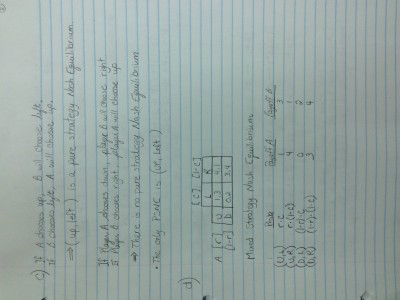 c) If A chooses up, B will choose left.
If B chooses left, A will choose up.
⇒ (up, left) is a pure strategy Nash Equilibrium.
If Player A chooses down, player B will choose right
If Player B chooses right, player A will choose up
⇒ There is no pure strategy Nash Equilibrium.
• The only PSNE is (up, left)
d)
[c] [1-c]
L R
A [r] U 1,3 4,1
[1-r] D 0,2 3,4
Mixed Strategy Nash Equilibrium
Prob Payoff A Payoff B
(U,L) r·c 1 3
(U,R) r·(1-c) 4 1
(D,L) (1-r)·c 2
(D,R) (1-r)·(1-c) 3 4